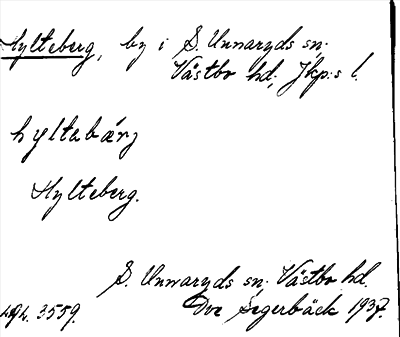 Hylteberg, by i S. Unnaryds sn.
Västbo hd, Jkp:s l.
hyltabärj
Hylteberg.
S. Unnaryds sn, Västbo hd.
3559. Ove Segerbäck 1937.